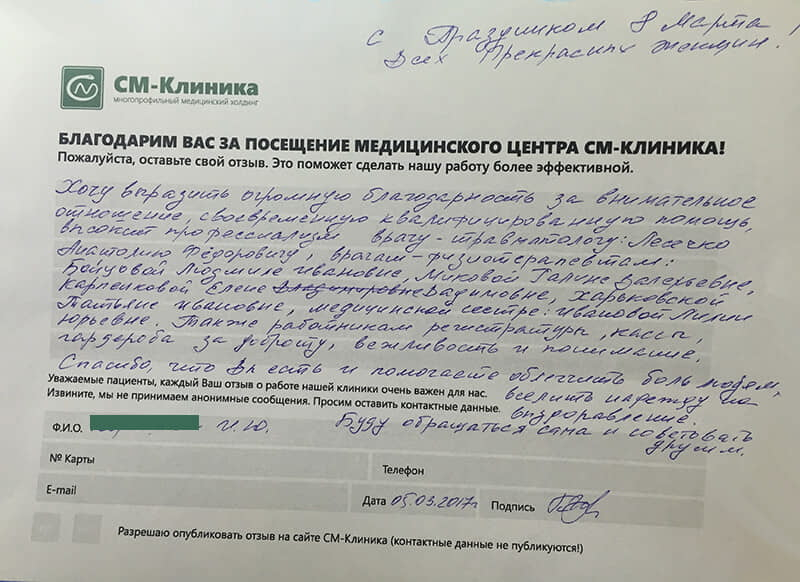 с Праздником 8 Марта!
Всех Прекрасных женщин.
СМ-Клиника
многопрофильный медицинский холдинг
БЛАГОДАРИМ ВАС ЗА ПОСЕЩЕНИЕ МЕДИЦИНСКОГО ЦЕНТРА СМ-КЛИНИКА!
Пожалуйста, оставьте свой отзыв. Это поможет сделать нашу работу более эффективной.
Хочу выразить огромную благодарность за внимательное
отношение, своевременную квалифицированную помощь,
высокий профессиализм врачу-травматологу: Лесечко
Анатолию Фёдоровичу, врачам-физиотерапевтам:
Бойцовой Людмиле Ивановне, Миковой Галине Валерьевне,
Карпенковой Елене Вадимовне, Харьковской
Татьяне Ивановне, медицинской сестре: Ивановой Лилии
Юрьевне. Также работникам регистратуры, кассы,
гардероба за доброту, вежливость и понимание.
Спасибо, что Вы есть и помогаете облегчить боль людям,
Уважаемые пациенты, каждый Ваш отзыв о работе нашей клиники очень важен для нас. вселить надежду на
Извините, мы не принимаем анонимные сообщения. Просим оставить контактные данные. выздоравление.
Ф.И.О. И.Ю. Буду обращаться сама и советовать
другим.
№ Карты Телефон
E-mail Дата 05.03.2017г Подпись
Разрешаю опубликовать отзыв на сайте СМ-Клиника (контактные данные не публикуются!)